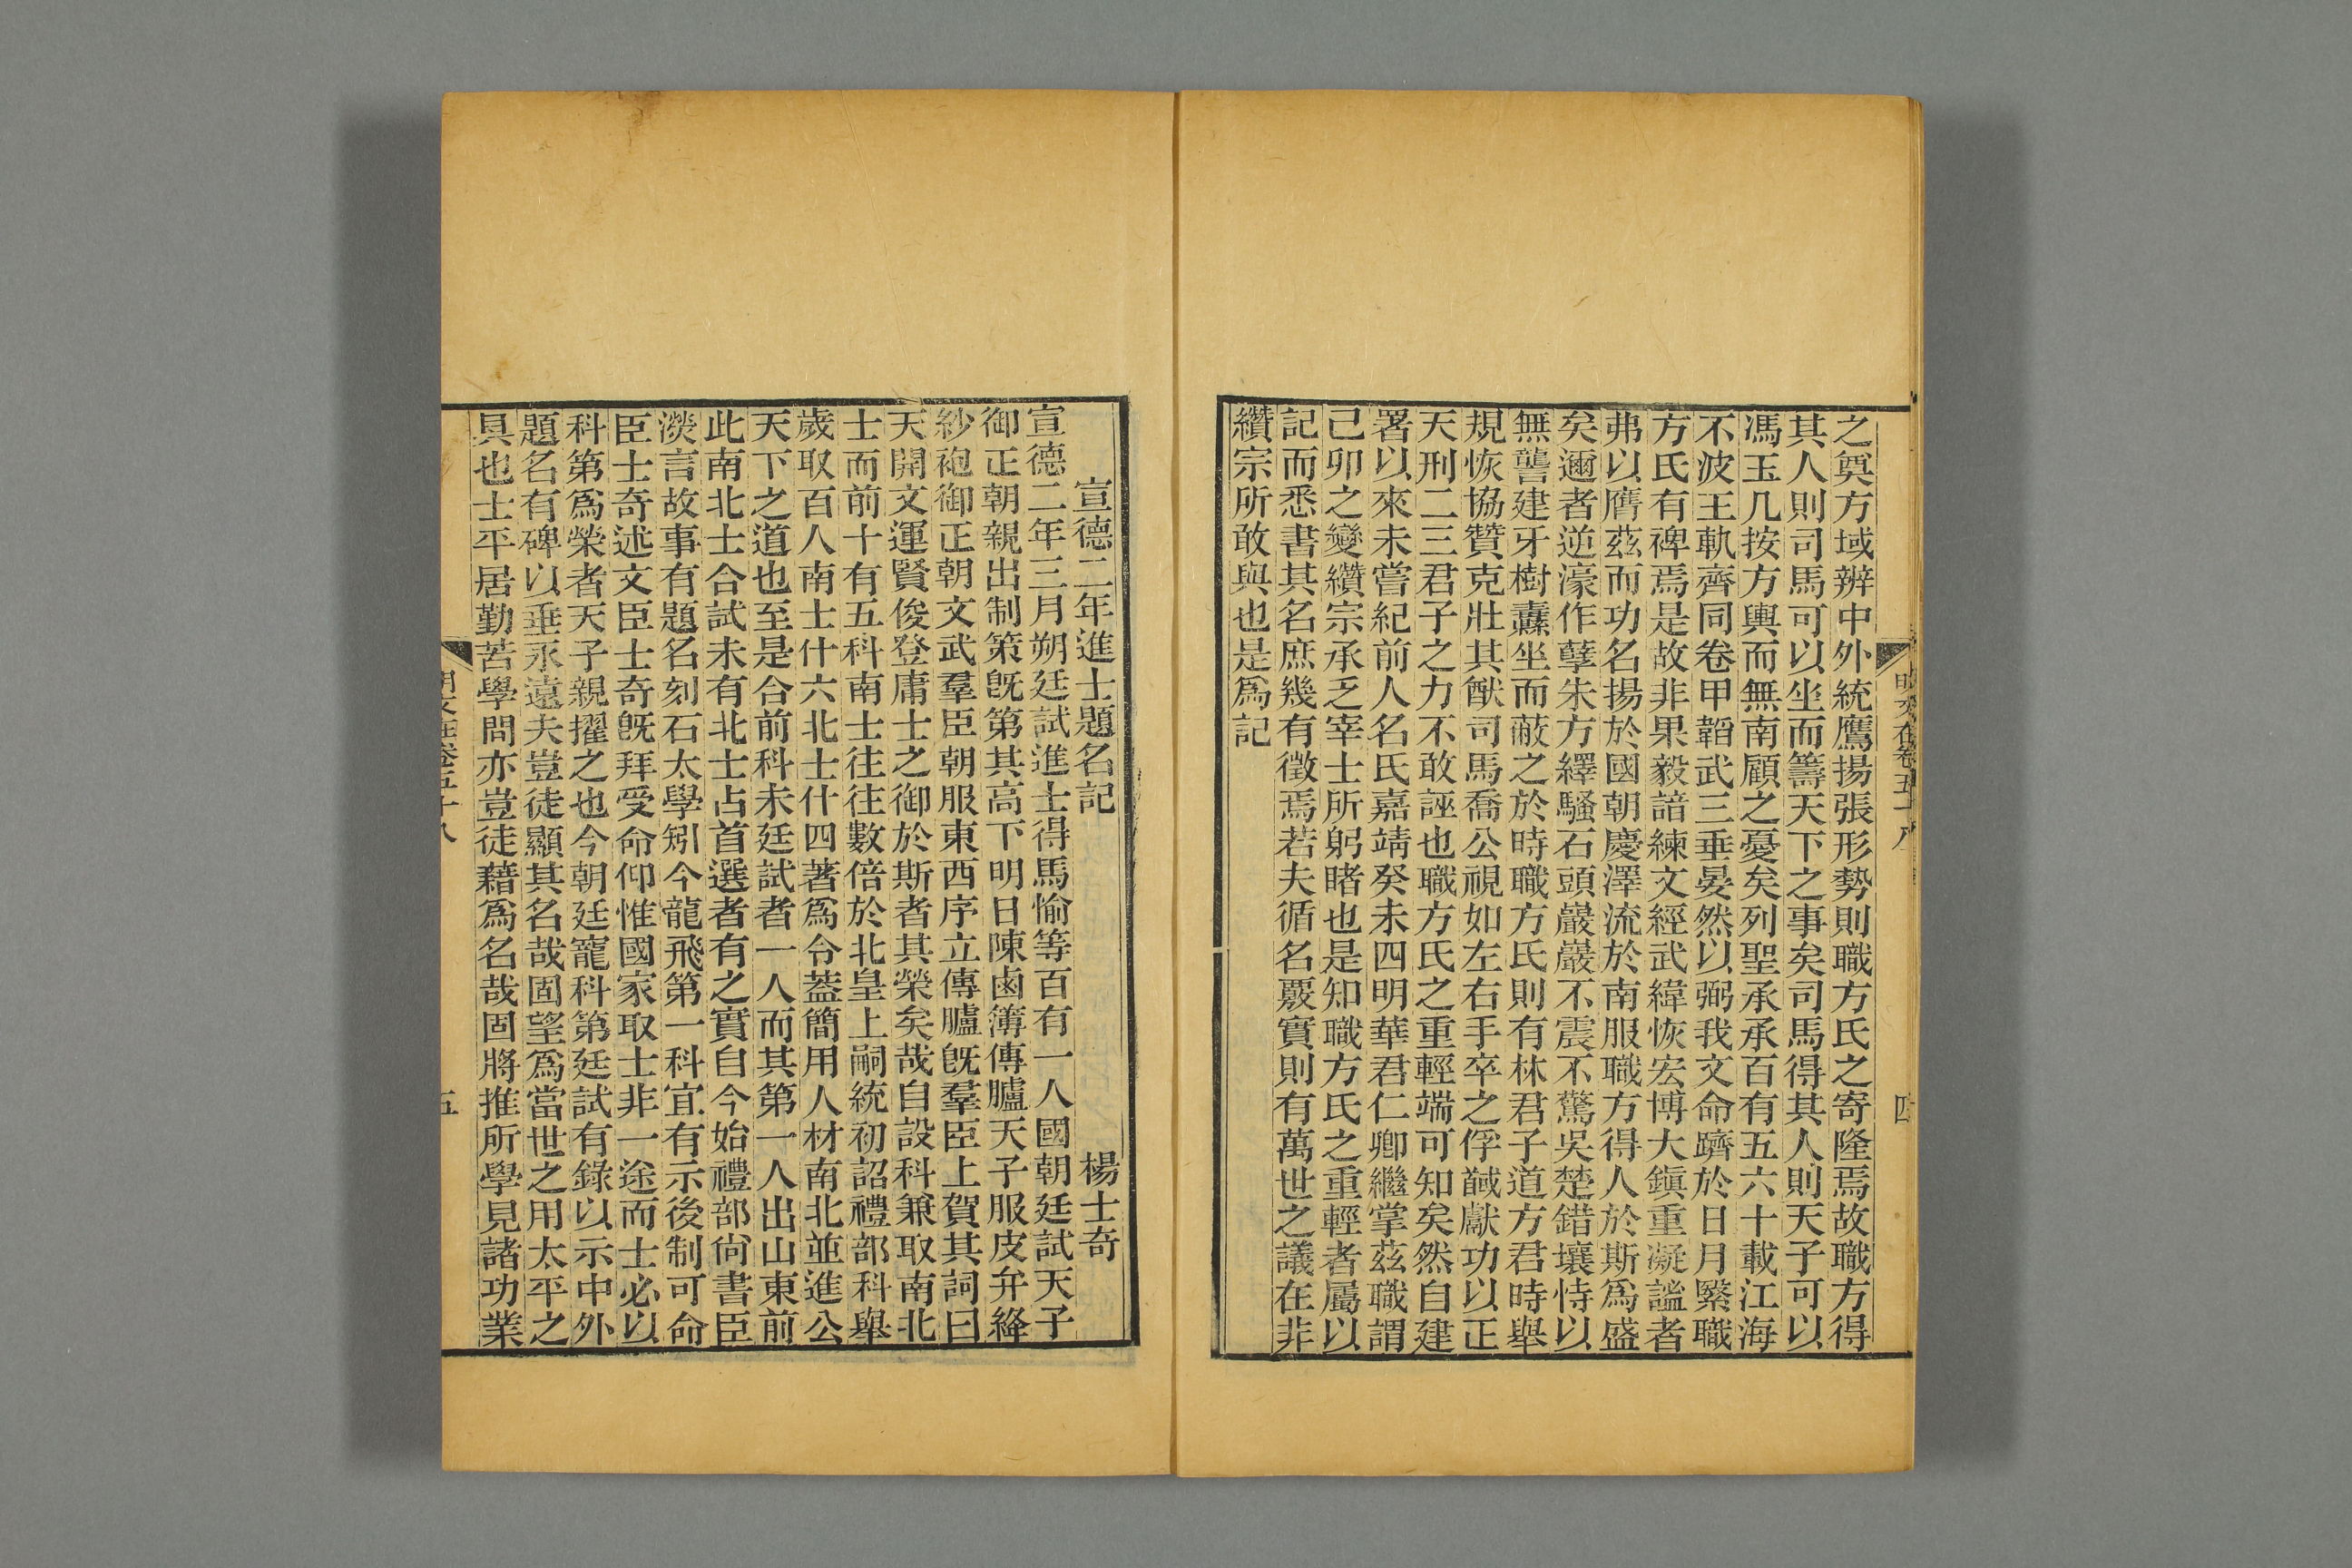 之奠方域辨中外統鷹揚張形勢則職方氏之寄隆焉故職方得
其人則司馬可以坐而籌天下之事矣司馬得其人則天子可以
馮玉几按方輿而無南顧之憂矣列聖承承百有五六十載江海
不波王軌齊同卷甲韜武三垂晏然以弼我文命躋於日月繄職
方氏有裨焉是故非果毅諳練文經武緯恢宏博大鎭重凝謐者
弗以膺茲而功名揚於國朝慶澤流於南服職方得人於斯爲盛
矣邇者逆濠作孽朱方繹騷石頭巖巖不震不驚吳楚錯壤恃以
無讋建牙樹纛坐而蔽之於時職方氏則有林君子道方君時舉
規恢協贊克壯其猷司馬喬公視如左右手卒之俘馘獻功以正
天刑二三君子之力不敢誣也職方氏之重輕端可知矣然自建
署以來未嘗紀前人名氏嘉靖癸未四明華君仁卿繼掌茲職謂
己卯之變纘宗承乏宰士所躬睹也是知職方氏之重輕者屬以
記而悉書其名庶幾有徵焉若夫循名覈實則有萬世之議在非
纘宗所敢與也是爲記
明文在卷五十八
四
宣德二年進士題名記
楊士奇
宣德二年三月朔廷試進士得馬愉等百有一人國朝廷試天子
御正朝親出制策旣第其高下明日陳鹵簿傳臚天子服皮弁絳
紗袍御正朝文武羣臣朝服東西序立傳臚旣羣臣上賀其詞曰
天開文運賢俊登庸士之御於斯者其榮矣哉自設科兼取南北
士而前十有五科南士往往數倍於北皇上嗣統初詔禮部科舉
歲取百人南士什六北士什四著爲令蓋簡用人材南北並進公
天下之道也至是合前科未廷試者一人而其第一人出山東前
此南北士合試未有北士占首選者有之實自今始禮部尙書臣
濙言故事有題名刻石太學矧今龍飛第一科宜有示後制可命
臣士奇述文臣士奇旣拜受命仰惟國家取士非一途而士必以
科第爲榮者天子親擢之也今朝廷寵科第廷試有錄以示中外
題名有碑以垂永遠夫豈徒顯其名哉固望爲當世之用太平之
具也士平居勤苦學問亦豈徒藉爲名哉固將推所學見諸功業
明文在卷五十八
五